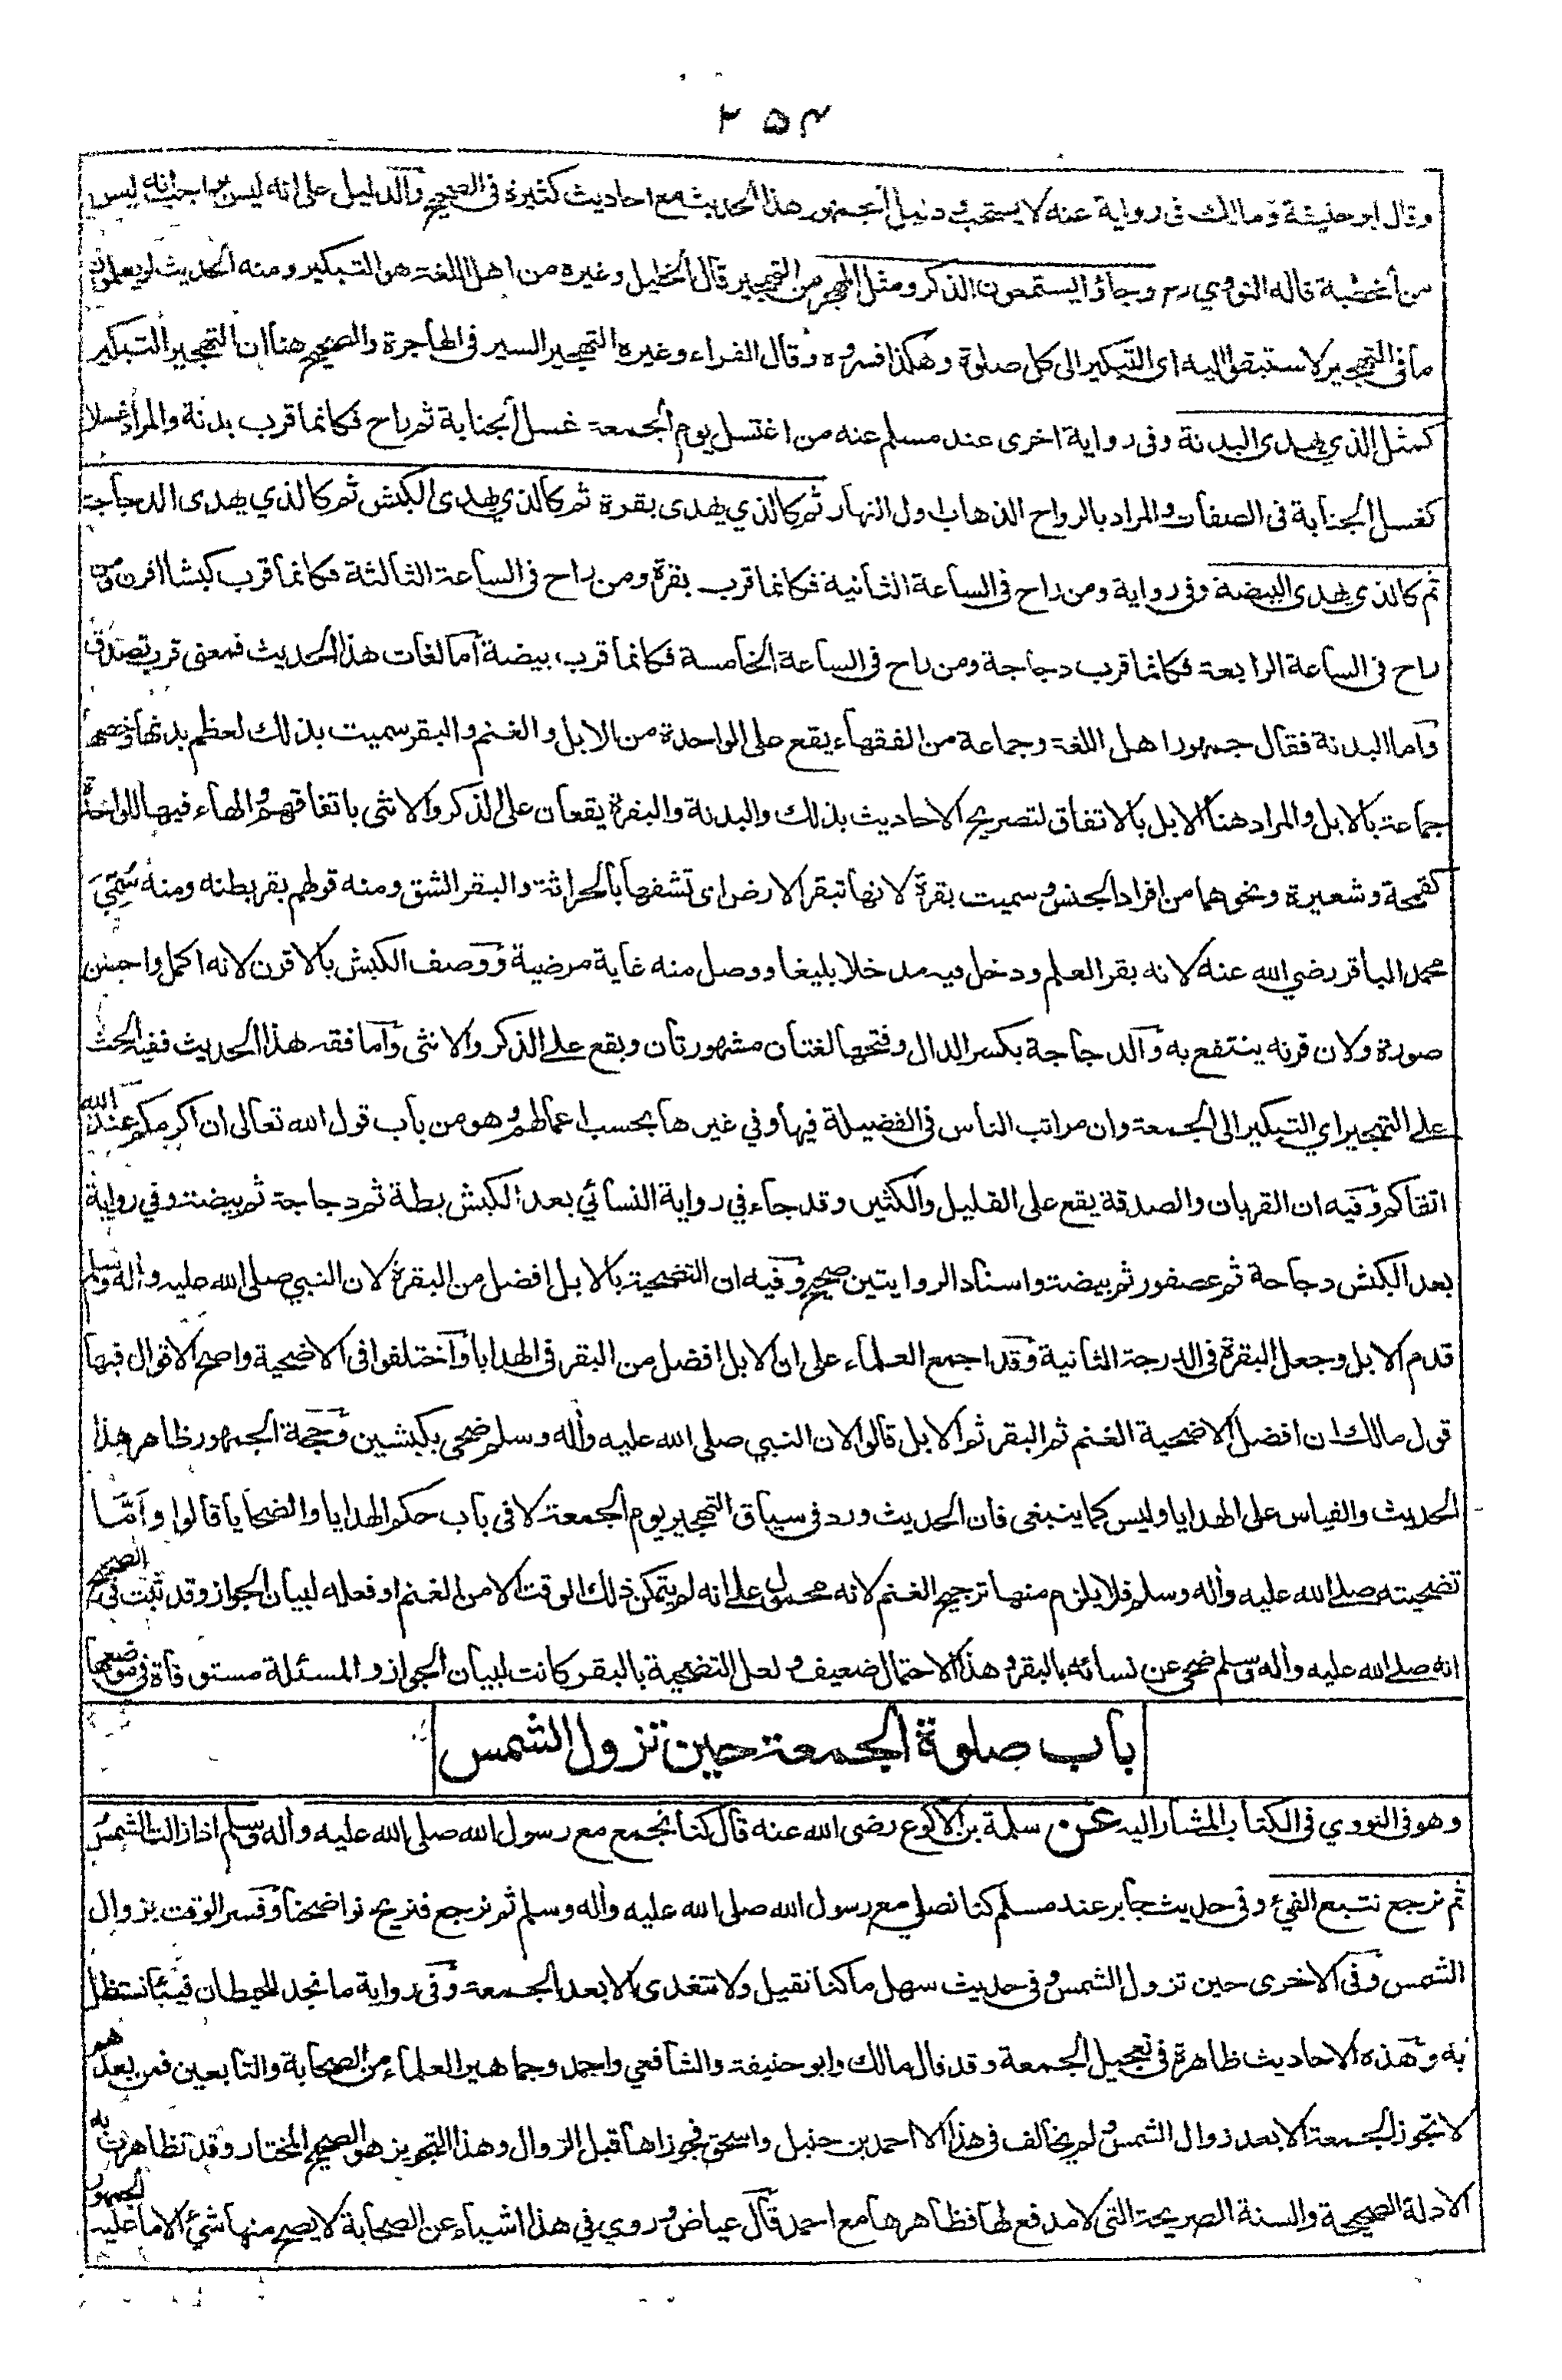 ٢٥٤
وقال ابو حنيفة ومالك في رواية عنه لا يستحب ودليل الجمهور هذا الحديث مع احاديث كثيرة في الصحيح والدليل على انه ليس بواجب انه ليس
من الخطبة قاله النووي رح وجاؤا يستمعون الذكر ومثل المهجر من التهجير قال الخليل وغيره من اهل اللغة هو التبكير ومنه الحديث لو يعلمون
ما في التهجير لاستبقوا اليه اى التبكير الى كل صلوة وهكذا فسروه وقال الفراء وغيره التهجير السير في الهاجرة والصحيح هنا ان التهجير التبكير
كمثل الذي يهدى البدنة وفى رواية اخرى عند مسلم عنه من اغتسل يوم الجمعة غسل الجنابة ثم راح فكانما قرب بدنة والمراد غسلا
كغسل الجنابة فى الصفات والمراد بالرواح الذهاب اول النهار ثم كالذي يهدى بقرة ثم كالذي يهدى الكبش ثم كالذي يهدى الدجاجة
ثم كالذي يهدى البيضة وفى رواية ومن راح فى الساعة الثانية فكانما قرب بقرة ومن راح فى الساعة الثالثة فكانما قرب كبشا اقرن ومن
راح فى الساعة الرابعة فكانما قرب دجاجة ومن راح فى الساعة الخامسة فكانما قرب بيضة اما لغات هذا الحديث فمعنى قرب تصدق
واما البدنة فقال جمهور اهل اللغة وجماعة من الفقهاء يقع على الواحدة من الابل والغنم والبقر سميت بذلك لعظم بدنها وخصها
جماعة بالابل والمراد هنا الابل بالاتفاق لتصريح الاحاديث بذلك والبدنة والبقرة يقعان على الذكر والانثى باتفاقهم والهاء فيها للواحدة
كقمحة وشعيرة ونحوهما من افراد الجنس وسميت بقرة لانها تبقر الارض اى تشقها بالحراثة والبقر الشق ومنه قولهم بقر بطنه ومنه سُمِّيَ
محمد الباقر رضي الله عنه لانه بقر العلم ودخل فيه مدخلا بليغا ووصل منه غاية مرضية ووصف الكبش بالاقرن لانه اكمل واحسن
صورة ولان قرنه ينتفع به والدجاجة بكسر الدال وفتحها لغتان مشهورتان ويقع على الذكر والانثى واما فقه هذا الحديث ففيه الحث
على التهجير اي التبكير الى الجمعة وان مراتب الناس فى الفضيلة فيها وفي غيرها بحسب اعمالهم وهو من باب قول الله تعالى ان اكرمكم عند الله
اتقاكم وفيه ان القربان والصدقة يقع على القليل والكثير وقد جاء في رواية النسائي بعد الكبش بطة ثم دجاجة ثم بيضة وفي رواية
بعد الكبش دجاجة ثم عصفور ثم بيضة واسناد الروايتين صحيح وفيه ان التضحية بالابل افضل من البقرة لان النبي صلى الله عليه واله وسلم
قدم الابل وجعل البقرة فى الدرجة الثانية وقد اجمع العلماء على ان الابل افضل من البقر فى الهدايا واختلفوا فى الاضحية واصح الاقوال فيها
قول مالك ان افضل الاضحية الغنم ثم البقر ثم الابل قالوا لان النبي صلى الله عليه واله وسلم ضحى بكبشين وحجة الجمهور ظاهر هذا
الحديث والقياس على الهدايا وليس كما ينبغى فان الحديث ورد فى سياق التهجير يوم الجمعة لا فى باب حكم الهدايا والضحايا قالوا وامّا
تضحيته صلى الله عليه واله وسلم فلا يلزم منها ترجيح الغنم لانه محمول على انه لم يتمكن ذلك الوقت الا من الغنم او فعله لبيان الجواز وقد ثبت فى الصحيح
انه صلى الله عليه واله وسلم ضحى عن نسائه بالبقر وهذا الاحتمال ضعيف ولعل التضحية بالبقر كانت لبيان الجواز والمسئلة مستوفاة فى موضعها
باب صلوة الجمعة حين تزول الشمس
وهو فى النووي فى الكتاب المشار اليه عن سلمة بن الاكوع رضى الله عنه قال كنا نجمع مع رسول الله صلى الله عليه واله وسلم اذا زالت الشمس
ثم نرجع نتتبع الفيء وفى حديث جابر عند مسلم كنا نصلي مع رسول الله صلى الله عليه واله وسلم ثم نرجع فنريح نواضحنا وفسر الوقت بزوال
الشمس وفى الاخرى حين تزول الشمس وفى حديث سهل ما كنا نقيل ولا نتغدى الا بعد الجمعة وفى رواية ما نجد للحيطان فيئا نستظل
به وهذه الاحاديث ظاهرة فى تعجيل الجمعة وقد قال مالك وابو حنيفة والشافعي واحمد وجماهير العلماء من الصحابة والتابعين فمن بعدهم
لا تجوز الجمعة الا بعد زوال الشمس ولم يخالف فى هذا الا احمد بن حنبل واسحق فجوزاها قبل الزوال وهذا التجويز هو الصحيح المختار وقد تظاهرت به
الادلة الصحيحة والسنة الصريحة التى لا مدفع لها فظاهرها مع احمد قال عياض وروي في هذا اشياء عن الصحابة لا يصح منها شئ الا ما عليه الجمهور